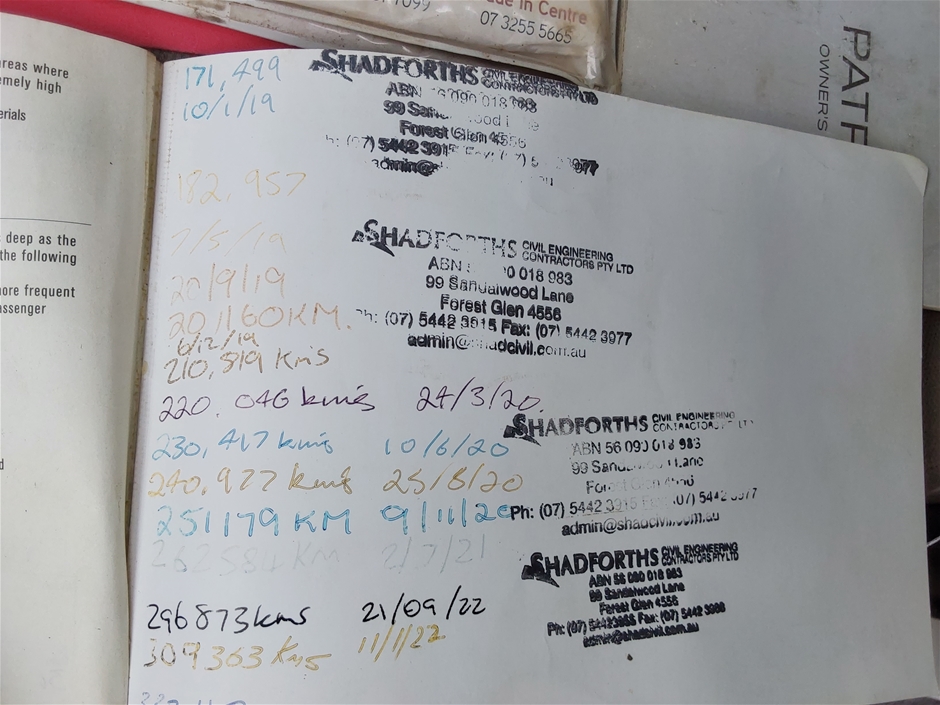 1099
de in Centre
07 3255 5665
PATR
OWNER'S
reas where
emely high
erials
deep as the
the following
ore frequent
ssenger
171,499
10/1/19
SHADFORTHS CIVIL ENGINEERING
CONTRACTORS PTY LTD
ABN 56 090 018 983
99 Sandalwood Lane
Forest Glen 4556
Ph: (07) 5442 3915 Fax: (07) 5442 3977
admin@
182,957
7/5/19
SHADFORTHS CIVIL ENGINEERING
CONTRACTORS PTY LTD
ABN 56 090 018 983
99 Sandalwood Lane
Forest Glen 4556
Ph: (07) 5442 3915 Fax: (07) 5442 3977
admin@shadcivil.com.au
20/9/19
201,160KM.
6/12/19
210,819 Kms
220.046 kms 24/3/20.
230,417 kms 10/6/20
240,977 kms 25/8/20
251179 KM 9/11/20
262584 KM 2/7/21
SHADFORTHS CIVIL ENGINEERING
CONTRACTORS PTY LTD
ABN 56 090 018 983
99 Sandalwood Lane
Forest Glen 4556
Ph: (07) 5442 3915 Fax: (07) 5442 3977
admin@shadcivil.com.au
SHADFORTHS CIVIL ENGINEERING
CONTRACTORS PTY LTD
ABN 56 090 018 983
99 Sandalwood Lane
Forest Glen 4556
Fax: (07) 5442
admin@shadcivil.com.au
296873kms 21/09/22
309363 Kms 11/1/22